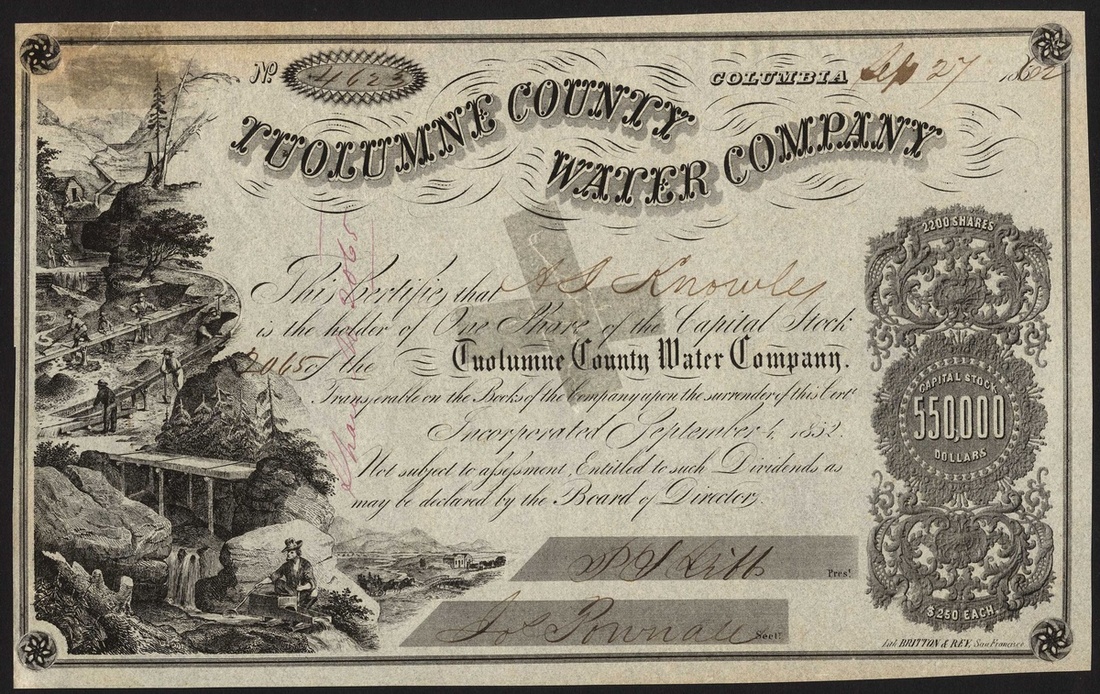 No. 4623
COLUMBIA Sep 27 1862
TUOLUMNE COUNTY
WATER COMPANY
This Certifies that A S Knowles
is the holder of One Share of the Capital Stock
2065 of the Tuolumne County Water Company.
Transferable on the Books of the Company upon the surrender of this Cert.
Incorporated September 4, 1852.
Not subject to assessment, Entitled to such Dividends as
may be declared by the Board of Directors.
Share No 2065
Pres!
Jos Pownall Sect!
2200 SHARES
CAPITAL STOCK
550,000
DOLLARS
$250 EACH.
Lith. BRITTON & REY, San Francisco